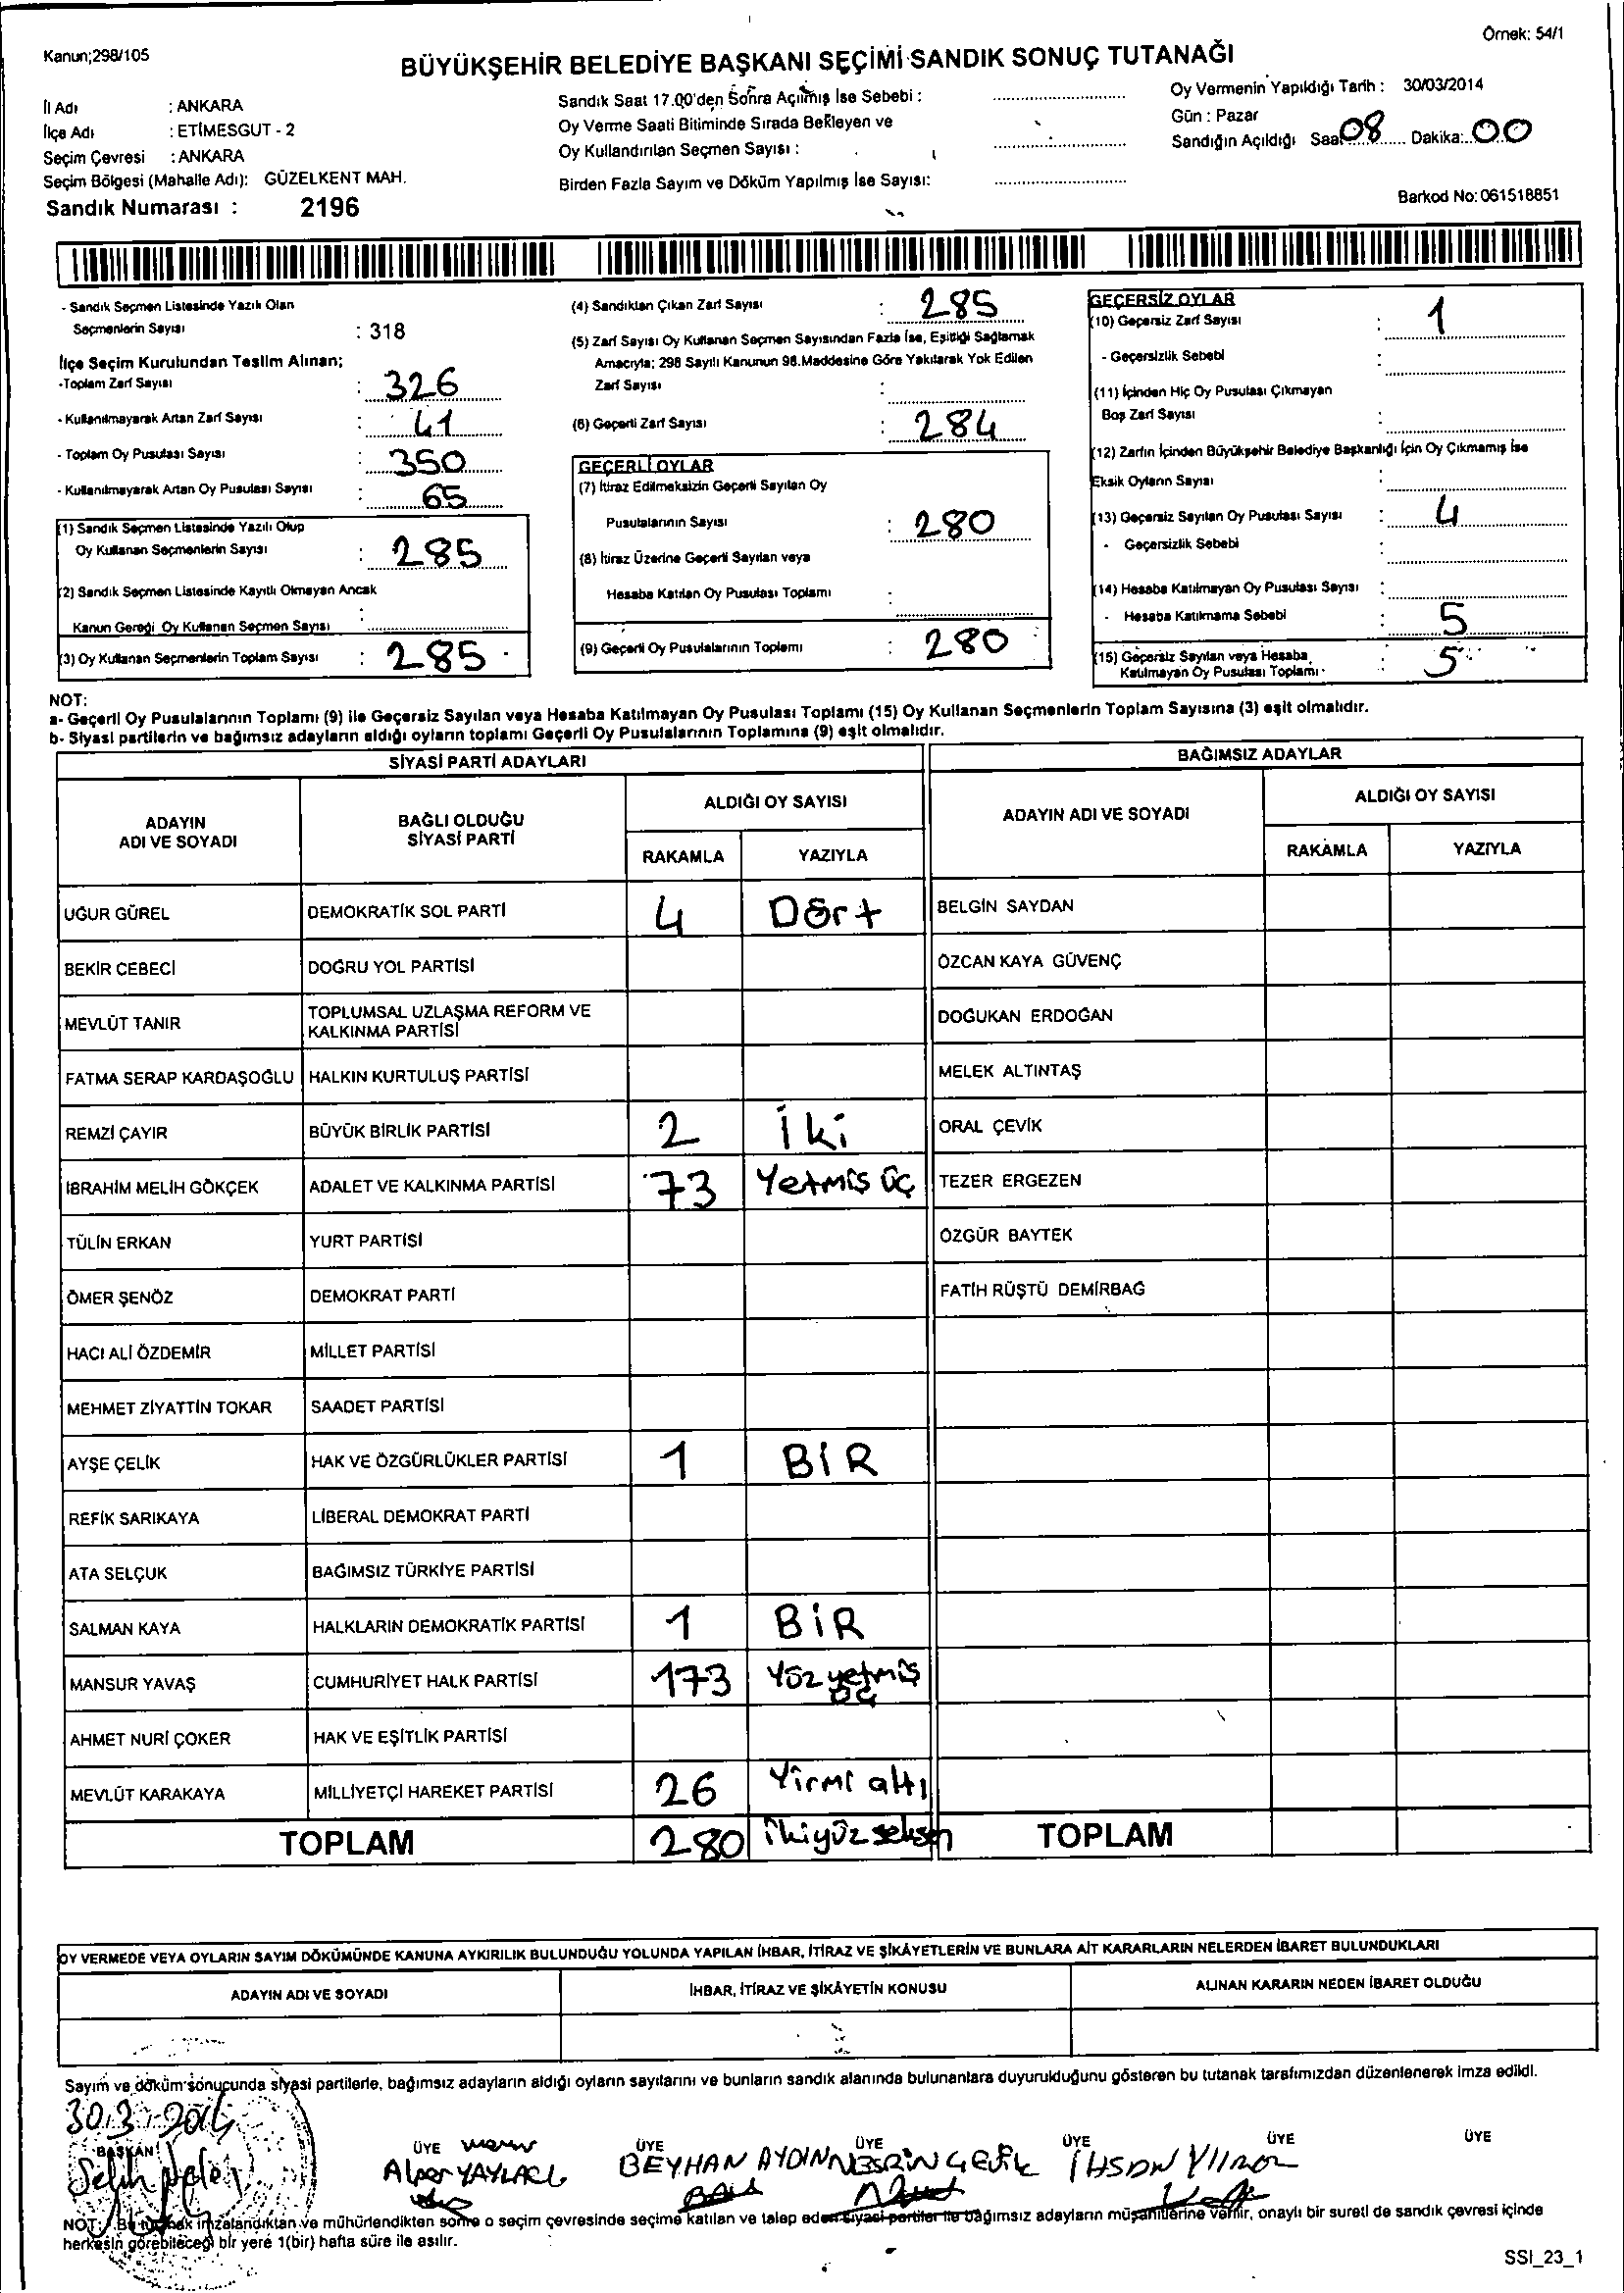 Örnek: 54/1
Kanun;298/105
BÜYÜKŞEHİR BELEDİYE BAŞKANI SEÇİMİ SANDIK SONUÇ TUTANAĞI
İl Adı : ANKARA
İlçe Adı : ETİMESGUT - 2
Seçim Çevresi : ANKARA
Seçim Bölgesi (Mahalle Adı): GÜZELKENT MAH.
Sandık Numarası : 2196
Sandık Saat 17.00'den Sonra Açılmış İse Sebebi :
Oy Verme Saati Bitiminde Sırada Bekleyen ve
Oy Kullandırılan Seçmen Sayısı :
Birden Fazla Sayım ve Döküm Yapılmış İse Sayısı:
Oy Vermenin Yapıldığı Tarih : 30/03/2014
Gün : Pazar
Sandığın Açıldığı Saat 08 Dakika: 00
Barkod No: 061518851
- Sandık Seçmen Listesinde Yazılı Olan
Seçmenlerin Sayısı : 318
İlçe Seçim Kurulundan Teslim Alınan;
-Toplam Zarf Sayısı : 326
- Kullanılmayarak Artan Zarf Sayısı : 41
- Toplam Oy Pusulası Sayısı : 350
- Kullanılmayarak Artan Oy Pusulası Sayısı : 65
(1) Sandık Seçmen Listesinde Yazılı Olup
Oy Kullanan Seçmenlerin Sayısı : 285
(2) Sandık Seçmen Listesinde Kayıtlı Olmayan Ancak
Kanun Gereği Oy Kullanan Seçmen Sayısı :
(3) Oy Kullanan Seçmenlerin Toplam Sayısı : 285
(4) Sandıktan Çıkan Zarf Sayısı : 285
(5) Zarf Sayısı Oy Kullanan Seçmen Sayısından Fazla İse, Eşitliği Sağlamak
Amacıyla; 298 Sayılı Kanunun 98.Maddesine Göre Yakılarak Yok Edilen
Zarf Sayısı :
(6) Geçerli Zarf Sayısı : 284
GEÇERLİ OYLAR
(7) İtiraz Edilmeksizin Geçerli Sayılan Oy
Pusulalarının Sayısı : 280
(8) İtiraz Üzerine Geçerli Sayılan veya
Hesaba Katılan Oy Pusulası Toplamı :
(9) Geçerli Oy Pusulalarının Toplamı : 280
GEÇERSİZ OYLAR
(10) Geçersiz Zarf Sayısı : 1
- Geçersizlik Sebebi :
(11) İçinden Hiç Oy Pusulası Çıkmayan
Boş Zarf Sayısı :
(12) Zarfın İçinden Büyükşehir Belediye Başkanlığı İçin Oy Çıkmamış İse
Eksik Oyların Sayısı :
(13) Geçersiz Sayılan Oy Pusulası Sayısı : 4
- Geçersizlik Sebebi :
(14) Hesaba Katılmayan Oy Pusulası Sayısı :
- Hesaba Katılmama Sebebi : 5
(15) Geçersiz Sayılan veya Hesaba
Katılmayan Oy Pusulası Toplamı : 5
NOT:
a- Geçerli Oy Pusulalarının Toplamı (9) ile Geçersiz Sayılan veya Hesaba Katılmayan Oy Pusulası Toplamı (15) Oy Kullanan Seçmenlerin Toplam Sayısına (3) eşit olmalıdır.
b- Siyasi partilerin ve bağımsız adayların aldığı oyların toplamı Geçerli Oy Pusulalarının Toplamına (9) eşit olmalıdır.
SİYASİ PARTİ ADAYLARI BAĞIMSIZ ADAYLAR
ADAYIN ADI VE SOYADI BAĞLI OLDUĞU SİYASİ PARTİ ALDIĞI OY SAYISI ADAYIN ADI VE SOYADI ALDIĞI OY SAYISI
RAKAMLA YAZIYLA RAKAMLA YAZIYLA
UĞUR GÜREL DEMOKRATİK SOL PARTİ 4 Dört BELGİN SAYDAN
BEKİR CEBECİ DOĞRU YOL PARTİSİ ÖZCAN KAYA GÜVENÇ
MEVLÜT TANIR TOPLUMSAL UZLAŞMA REFORM VE KALKINMA PARTİSİ DOĞUKAN ERDOĞAN
FATMA SERAP KARDAŞOĞLU HALKIN KURTULUŞ PARTİSİ MELEK ALTINTAŞ
REMZİ ÇAYIR BÜYÜK BİRLİK PARTİSİ 2 İki ORAL ÇEVİK
İBRAHİM MELİH GÖKÇEK ADALET VE KALKINMA PARTİSİ 73 Yetmiş üç TEZER ERGEZEN
TÜLİN ERKAN YURT PARTİSİ ÖZGÜR BAYTEK
ÖMER ŞENÖZ DEMOKRAT PARTİ FATİH RÜŞTÜ DEMİRBAĞ
HACI ALİ ÖZDEMİR MİLLET PARTİSİ
MEHMET ZİYATTİN TOKAR SAADET PARTİSİ
AYŞE ÇELİK HAK VE ÖZGÜRLÜKLER PARTİSİ 1 BİR
REFİK SARIKAYA LİBERAL DEMOKRAT PARTİ
ATA SELÇUK BAĞIMSIZ TÜRKİYE PARTİSİ
SALMAN KAYA HALKLARIN DEMOKRATİK PARTİSİ 1 BİR
MANSUR YAVAŞ CUMHURİYET HALK PARTİSİ 173 Yüz yetmiş üç
AHMET NURİ ÇOKER HAK VE EŞİTLİK PARTİSİ
MEVLÜT KARAKAYA MİLLİYETÇİ HAREKET PARTİSİ 26 Yirmi altı
TOPLAM 280 ikiyüz seksen TOPLAM
OY VERMEDE VEYA OYLARIN SAYIM DÖKÜMÜNDE KANUNA AYKIRILIK BULUNDUĞU YOLUNDA YAPILAN İHBAR, İTİRAZ VE ŞİKÂYETLERİN VE BUNLARA AİT KARARLARIN NELERDEN İBARET BULUNDUKLARI
ADAYIN ADI VE SOYADI İHBAR, İTİRAZ VE ŞİKÂYETİN KONUSU ALINAN KARARIN NEDEN İBARET OLDUĞU
Sayım ve döküm sonucunda siyasi partilerle, bağımsız adayların aldığı oyların sayılarını ve bunların sandık alanında bulunanlara duyurulduğunu gösteren bu tutanak tarafımızdan düzenlenerek imza edildi.
30.3.2014
BAŞKAN ÜYE ÜYE ÜYE ÜYE ÜYE ÜYE
Alper YAYLACI BEYHAN AYDIN NESRİN ÇEVİK
NOT: Bu tutanak imzalandıktan ve mühürlendikten sonra o seçim çevresinde seçime katılan ve talep eden siyasi partiler ile bağımsız adayların müşahitlerine verilir, onaylı bir sureti de sandık çevresi içinde
herkesin görebileceği bir yere 1(bir) hafta süre ile asılır.
SSI_23_1